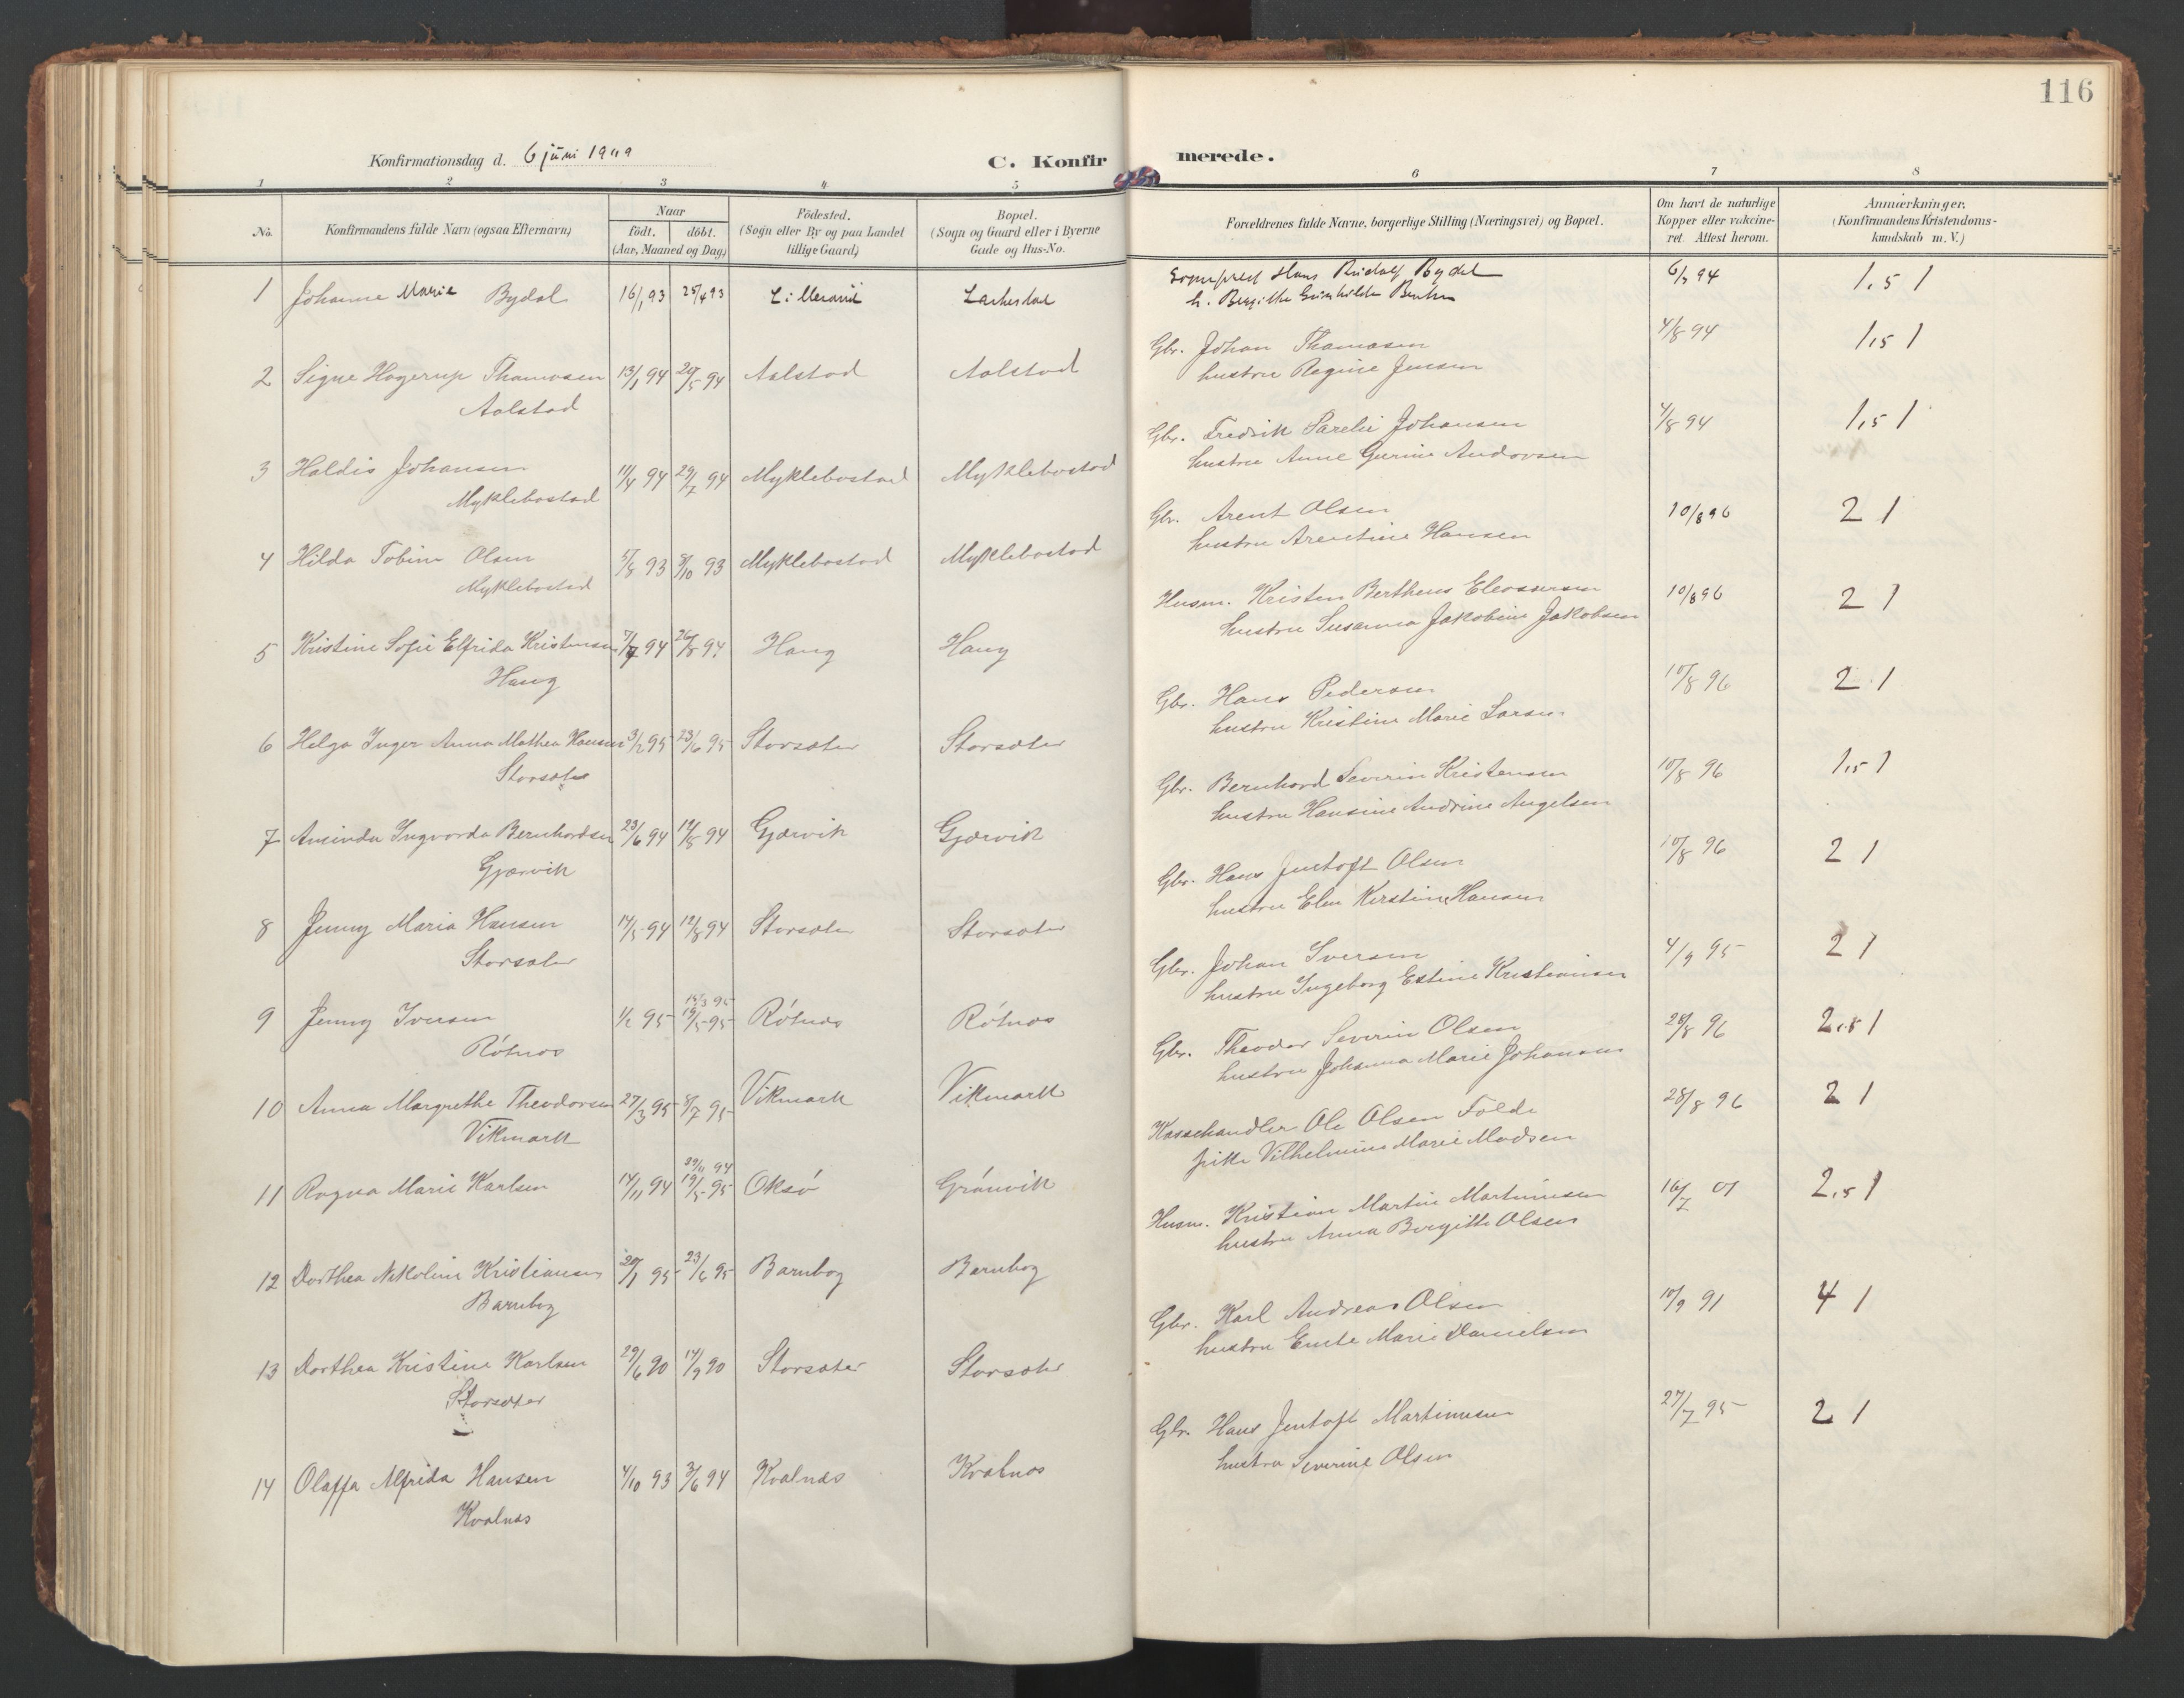 116
Konfirmationsdag d. 6 juni 1909
C. Konfirmerede.
1 2 3 4 5 6 7 8
No.
Konfirmandens fulde Navn (ogsaa Efternavn)
Naar
födt. döbt.
(Aar, Maaned og Dag)
Födested.
(Sogn eller By og paa Landet
tillige Gaard)
Bopæl.
(Sogn og Gaard eller i Byerne
Gade og Hus-No.
Forældrenes fulde Navne, borgerlige Stilling (Næringsvei) og Bopæl.
Om havt de naturlige
Kopper eller vakcine-
ret Attest herom.
Anmærkninger,
(Konfirmandens Kristendoms-
kundskab m. V.)
1 Johanne Marie Bydal 16/1 93 25/4 93 Lillesand
Sogneprest Hans Rudolf Bydal 6/7 94 1,5 1
h. Birgitte
2 Signe Hagerup Thomasen 13/1 94 20/5 94 Aalstad Aalstad
Aalstad
Gbr. Johan Thomasen 4/8 94 1,5 1
hustru Regine Jensen
3 Haldis Johansen 11/4 94 29/7 94 Myklebostad Myklebostad
Myklebostad
Gbr. Fredrik Parelie Johansen 4/8 94 1,5 1
hustru Anne Gurine Andorsen
4 Hilda Tobine Olsen 5/8 93 8/10 93 Myklebostad Myklebostad
Myklebostad
Gbr. Arent Olsen 10/8 96 2 1
hustru Arentine Hansen
5 Kristine Sofie Elfrida Kristensen 7/7 94 26/8 94 Haug Haug
Haug
Husm. Kristen Bertheus Eleasersen 10/8 96 2 1
hustru Susanna Jakobine Jakobsen
6 Helga Inger Anna Mathea Hansen 3/2 95 23/6 95 Storsæter Storsæter
Storsæter
Gbr. Hans Pedersen 10/8 96 2 1
hustru Kristine Marie Larsen
7 Aminda Ingvarda Bernhardsen 23/6 94 12/8 94 Gjærvik Gjærvik
Gjærvik
Gbr. Bernhard Severin Kristensen 10/8 96 1,5 1
hustru Hansine Andrine Angelsen
8 Jenny Maria Hansen 14/5 94 12/8 94 Storsæter Storsæter
Storsæter
Gbr. Hans Jentoft Olsen 10/8 96 2 1
hustru Elen Kirstine Hansen
9 Jenny Iversen 1/2 95 15/3 95 19/5 95 Rötnæs Rötnæs
Rötnæs
Gbr. Johan Iversen 4/9 95 2 1
hustru Ingeborg Estine Kristiansen
10 Anna Margrethe Theodorsen 27/3 95 8/7 95 Vikmark Vikmark
Vikmark
Gbr. Theodor Severin Olsen 28/8 96 2,5 1
hustru Johanna Marie Johansen
11 Ragna Marie Karlsen 14/11 94 29/11 94 19/5 95 Oksö Grönvik
Ole Olsen Folde 28/8 96 2 1
Vilhelmine Marie Madsen
12 Dorthea Nikoline Kristiansen 20/1 95 23/6 95 Barnhog Barnhog
Barnhog
Husm. Kristian Martin Martinusen 16/7 01 2,5 1
hustru Anna Bergitte Olsen
13 Dorthea Kristine Karlsen 29/6 90 14/9 90 Storsæter Storsæter
Storsæter
Gbr. Karl Andreas Olsen 10/9 91 4 1
hustru Marie Danielsen
14 Olaffa Alfrida Hansen 4/10 93 3/6 94 Kvalnæs Kvalnæs
Kvalnæs
Gbr. Hans Jentoft Martinusen 27/7 95 2 1
hustru Severine Olsen